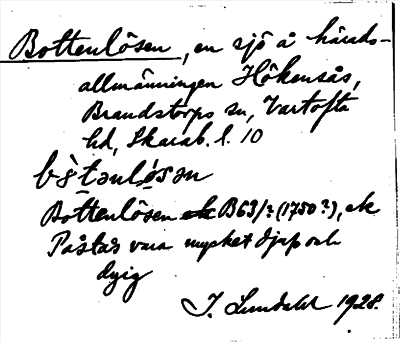 Bottenlösen, en sjö å härads-
allmänningen Hökensås,
Brandstorps sn, Vartofta
hd, Skarab. l. 10
bòtənlø̀sən
Bottenlösen B63/? (1750?), ek
Påstås vara mycket djup och
dyig
J. Lundahl 1928.